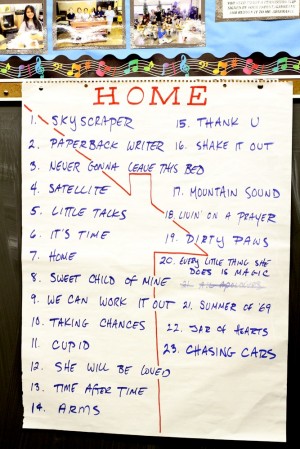 HOME
1. SKYSCRAPER
2. PAPERBACK WRITER
3. NEVER GONNA LEAVE THIS BED
4. SATELLITE
5. LITTLE TALKS
6. IT'S TIME
7. HOME
8. SWEET CHILD OF MINE
9. WE CAN WORK IT OUT
10. TAKING CHANCES
11. CUPID
12. SHE WILL BE LOVED
13. TIME AFTER TIME
14. ARMS
15. THANK U
16. SHAKE IT OUT
17. MOUNTAIN SOUND
18. LIVIN' ON A PRAYER
19. DIRTY PAWS
20. EVERY LITTLE THING SHE
DOES IS MAGIC
21. SUMMER OF '69
22. JAR OF HEARTS
23. CHASING CARS